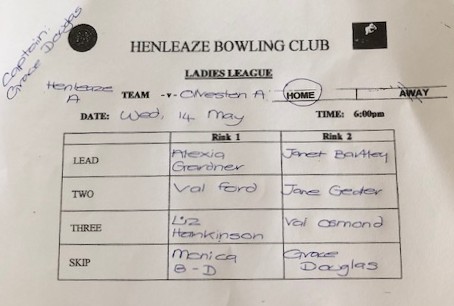 Captain:
Grace Douglas
HENLEAZE BOWLING CLUB
LADIES LEAGUE
Henleaze
A TEAM -v- Olveston A HOME AWAY
DATE: Wed, 14 May TIME: 6:00pm
Rink 1 Rink 2
LEAD Alexia Gardner Janet Bartley
TWO Val Ford Jane Geder
THREE Liz Hankinson Val Osmond
SKIP Monica B-D Grace Douglas